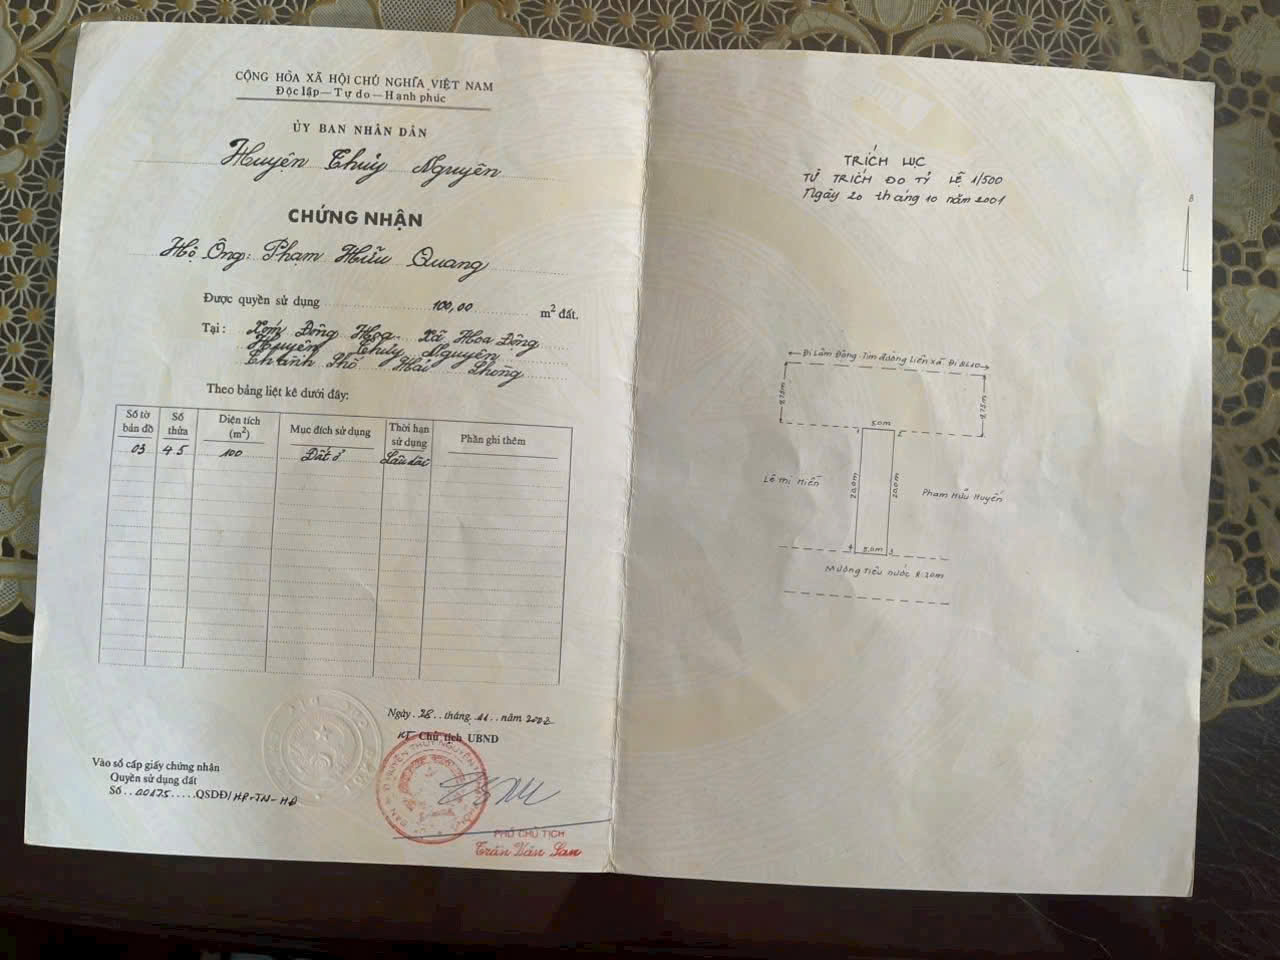 CỘNG HÒA XÃ HỘI CHỦ NGHĨA VIỆT NAM
Độc lập — Tự do — Hạnh phúc
ỦY BAN NHÂN DÂN
Huyện Thủy Nguyên
CHỨNG NHẬN
Hộ Ông: Phạm Hữu Quang
Được quyền sử dụng 100,00 m² đất.
Tại: Xóm Đông Hoa Xã Hoa Động
Huyện Thủy Nguyên
Thành Phố Hải Phòng
Theo bảng liệt kê dưới đây:
Số tờ bản đồ Số thửa Diện tích (m²) Mục đích sử dụng Thời hạn sử dụng Phần ghi thêm
03 45 100 Đất ở Lâu dài
Ngày 28 tháng 11 năm 2002
KT Chủ tịch UBND
Vào sổ cấp giấy chứng nhận
Quyền sử dụng đất
Số 00175 QSDĐ/HP-TN-HĐ
PHÓ CHỦ TỊCH
Trần Văn San
TRÍCH LỤC
TỪ TRÍCH ĐO TỶ LỆ 1/500
Ngày 20 tháng 10 năm 2001
B
Đi Lâm Động Tim đường liên xã Đi QL10
9,75m 9,75m
5.0m
1 2
Lê thị Hiến 20,0m 20,0m Phạm Hữu Huyến
4 5.0m 3
Mương tiêu nước R:20m